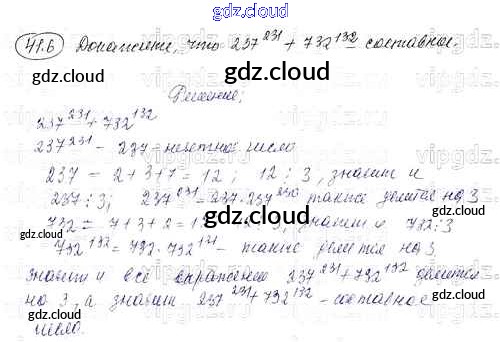 gdz.cloud
41.6 Докажите, что 237^231 + 732^132 – составное.
gdz.cloud
Решение;
237^231 + 732^132
237^231 – 237 – нечетное число
237 = 2+3+7 = 12; 12 ⋮ 3, значит и
237 ⋮ 3; 237^231 = 237·237^230 также делится на 3
732 = 7+3+2 = 3, значит и 732 ⋮ 3
732^132 = 732·732^131 – также делится на 3
значит и все выражение 237^231 + 732^132 делится
на 3, а значит 237^231 + 732^132 – составное
число.
gdz.cloud
gdz.cloud
gdz.cloud
gdz.cloud
gdz.cloud
gdz.cloud